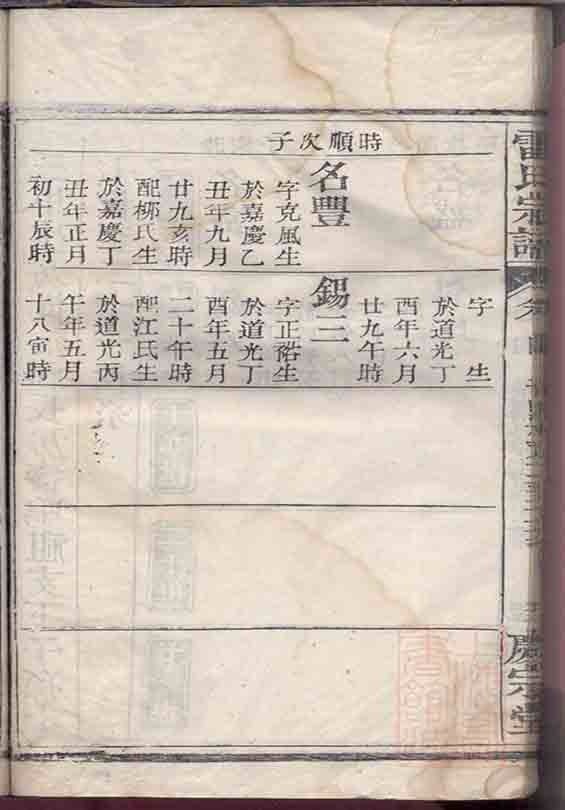 雷氏宗譜
慶宗堂
時順次子
名豐
字克風生
於嘉慶乙
丑年九月
廿九亥時
配柳氏生
於嘉慶丁
丑年正月
初十辰時
字 生
於道光丁
酉年六月
廿九午時
錫三
字正裕生
於道光丁
酉年五月
二十午時
配江氏生
於道光丙
午年五月
十八寅時